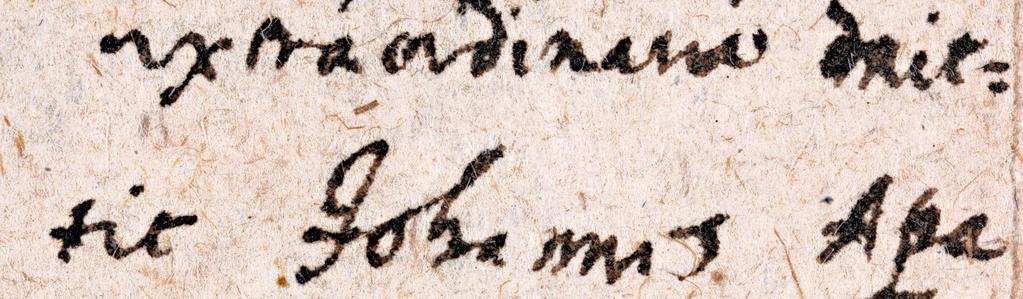 extraordinario dnit=
tit Johannis Apa